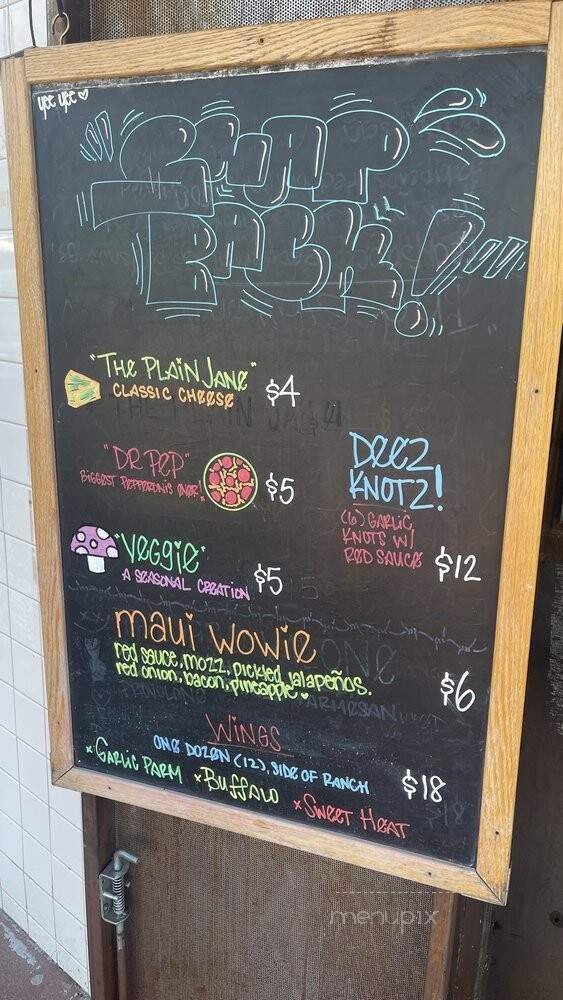 yee yee
SNAP
BACK!
"THE PLAIN JANE"
CLASSIC CHEESE $4
"DR PEP"
BIGGEST PEPPERONIS EVER! $5
DEEZ
KNOTZ!
(6) GARLIC
KNOTS W/
RED SAUCE $12
"VEGGIE"
A SEASONAL CREATION $5
maui wowie
red sauce, mozz, pickled jalapeños.
red onion, bacon, pineapple $6
WINGS
ONE DOZEN (12), SIDE OF RANCH $18
xGARLIC PARM xBUFFALO xSWEET HEAT
menupix